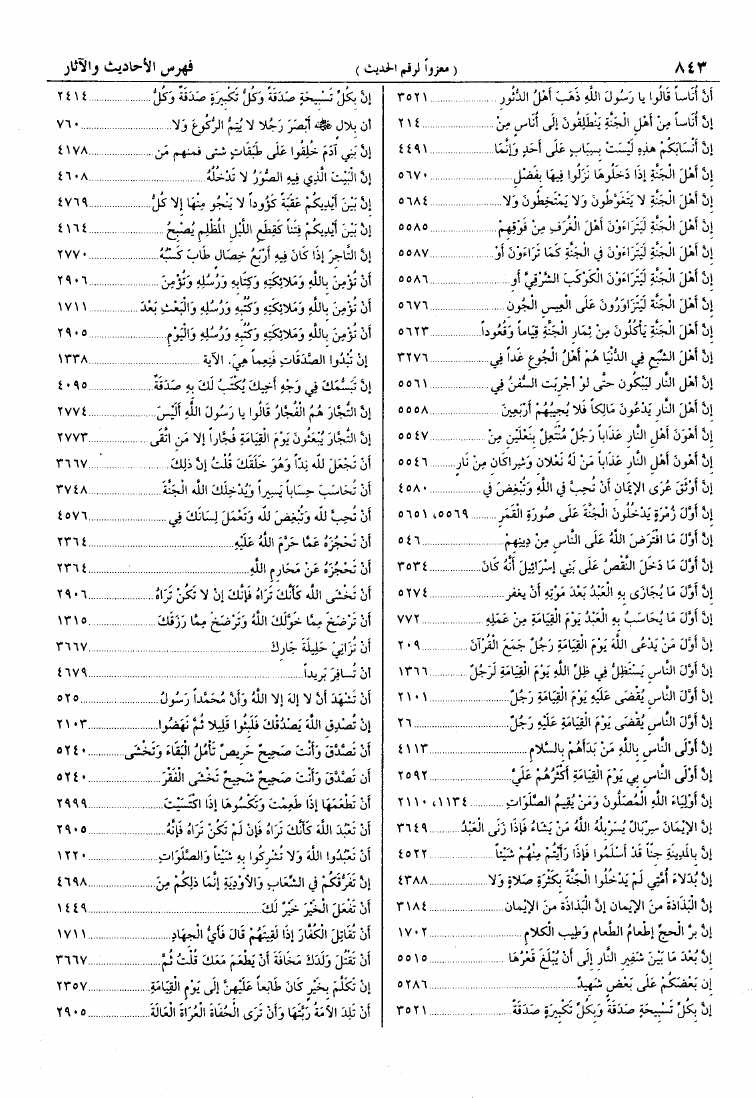 ٨٤٣ ( معزواً لرقم الحديث ) فهرس الأحاديث والآثار
أنَّ أُنَاساً قَالُوا يا رَسُولَ اللَّهِ ذَهَبَ أَهْلُ الدُّثُورِ ........ ٣٥٢١
إنَّ أُنَاساً مِنْ أهْلِ الْجَنَّةِ يَنْطَلِقُونَ إلَى أُنَاسٍ مِنْ ........ ٢١٤
إنَّ أنْسَابَكُمْ هذِهِ لَيْسَتْ بِسِبَابٍ عَلَى أَحَدٍ وَإنَّمَا ........ ٤٤٩١
إنَّ أَهْلَ الْجَنَّةِ إذَا دَخَلُوهَا نَزَلُوا فِيهَا بِفَضْلِ ........ ٥٦٧٠
إنَّ أَهْلَ الْجَنَّةِ لا يَتَغَوَّطُونَ وَلا يَمْتَخِطُونَ وَلا ........ ٥٦٨٤
إنَّ أَهْلَ الْجَنَّةِ لَيَتَرَاءَوْنَ أَهْلَ الْغُرَفِ مِنْ فَوْقِهِمْ ........ ٥٥٨٥
إنَّ أَهْلَ الْجَنَّةِ لَيَتَرَاءَوْنَ فِي الْجَنَّةِ كَمَا تَرَاءَوْنَ أَوْ ........ ٥٥٨٧
إنَّ أَهْلَ الْجَنَّةِ لَيَتَرَاءَوْنَ الْكَوْكَبَ الشَّرْقِيَّ أو ........ ٥٥٨٦
إنَّ أَهْلَ الْجَنَّة لَيَتَزَاوَرُونَ عَلَى الْعِيسِ الْجُونِ ........ ٥٦٧٦
إنَّ أَهْلَ الْجَنَّةِ يَأْكُلُونَ مِنْ ثِمَارِ الْجَنَّةِ قِيَاماً وَقُعُوداً ........ ٥٦٢٣
إنَّ أهْلَ الشِّبَعِ فِي الدُّنْيَا هُمْ أَهْلُ الْجُوعِ غَداً فِي ........ ٣٢٧٦
إنَّ أهْلَ النار لَيَبْكُون حتَّى لوْ اجْرِيَت السُّفنُ في ........ ٥٥٦١
إنَّ أَهْلَ النَّارِ يَدْعُونَ مَالِكاً فَلا يُجِيبُهُمْ أَرْبَعِينَ ........ ٥٥٥٨
إنَّ أَهْوَنَ أهْلِ النَّارِ عَذَاباً رَجُلٌ مُنْتَعِلٌ بِنَعْلَيْنِ مِنْ ........ ٥٥٤٧
إنَّ أهونَ أهْلِ النَّارِ عَذَاباً مَنْ لَهُ نَعْلانِ وَشِرَاكَانِ مِنْ نَارٍ ........ ٥٥٤٦
إنَّ أَوْثَقَ عُرَى الإِيمَانِ أَنْ تُحِبَّ في اللَّهِ وَتُبْغِضَ في ........ ٤٥٨٠
إنَّ أَوَّلَ زُمْرَةٍ يَدْخُلُونَ الْجَنَّةَ عَلَى صُورَةِ الْقَمَرِ ........ ٥٥٦٩، ٥٦٥١
إنَّ أَوَّلَ مَا افْتَرَضَ اللَّهُ عَلَى النَّاسِ مِنْ دِينِهِمْ ........ ٥٤٦
إنَّ أَوَّلَ مَا دَخَلَ النَّقْصُ عَلَى بَنِي إسْرَائِيلَ أَنَّهُ كَانَ ........ ٣٥٣٤
إنَّ أَوَّلَ مَا يُجَازَى بِهِ الْعَبْدُ بَعْدَ مَوْتِهِ أَنْ يغفر ........ ٥٢٧٤
إنَّ أَوَّلَ مَا يُحَاسَبُ بِهِ الْعَبْدُ يَوْمَ الْقِيَامَةِ مِنْ عَمَلِهِ ........ ٧٧٢
إنَّ أَوَّلَ مَنْ يَدْعُى اللَّهَ يَوْمَ الْقِيَامَةِ رَجُلٌ جَمَعَ الْقُرْآنَ ........ ٢٠٩
إنَّ أَوَّلَ النَّاسِ يَسْتَظِلُّ فِي ظِلِّ اللَّهِ يَوْمَ الْقِيَامَةِ لَرَجُلٌ ........ ١٣٦٦
إنَّ أَوَّلَ النَّاسِ يُقْضَى عَلَيْهِ يَوْمَ الْقِيَامَةِ رَجُلٌ ........ ٢١٠١
إنَّ أَوَّلَ النَّاسِ يُقْضَى يَوْمَ الْقِيَامَةِ عَلَيْهِ رَجُلٌ ........ ٢٦
إنَّ أَوْلَى النَّاسِ بِاللَّهِ مَنْ بَدَأهُمْ بِالسَّلامِ ........ ٤١١٣
إنَّ أَوْلَى النَّاسِ بِي يَوْمَ الْقِيَامَةِ أَكْثَرُهُمْ عَلَيَّ ........ ٢٥٩٢
إنَّ أَوْلِيَاءَ اللَّهِ الْمُصَلُّونَ وَمَنْ يُقِيمُ الصَّلَوَاتِ ........ ١١٣٤، ٢١١٠
إنَّ الإِيمَانَ سِرْبَالٌ يُسَرْبِلُهُ اللَّهُ مَنْ يَشَاءُ فَإذَا زَنَى الْعَبْدُ ........ ٣٦٤٩
إنَّ بِالْمَدِينَةِ جِنّاً قَدْ أسْلَمُوا فَإذَا رَأَيْتُمْ مِنْهُمْ شَيْئاً ........ ٤٥٢٢
إنَّ بُدَلاءَ أُمَّتِي لَمْ يَدْخُلُوا الْجَنَّةَ بِكَثْرَةِ صَلاةٍ وَلا ........ ٤٣٨٨
إنَّ الْبَذَاذَةَ مِنَ الإِيمَانِ إنَّ الْبَذَاذَةَ مِنَ الإِيمَانِ ........ ٣١٨٤
إنَّ برَّ الْحَجِّ إطْعامُ الطَّعَامِ وَطِيب الْكلامِ ........ ١٧٠٢
إنَّ بُعْدَ مَا بَيْنَ شَفِيرِ النَّارِ إلَى أَنْ يُبْلَغَ قَعْرُهَا ........ ٥٥١٥
إن بَعْضَكُمْ عَلَى بَعْضٍ شَهِيدٌ ........ ٥٢٨٦
إنَّ بِكُلِّ تَسْبِيحَةٍ صَدَقَةً وَبِكُلِّ تَكْبِيرَةٍ صَدَقَةً ........ ٣٥٢١
إنَّ بِكُلِّ تَسْبِيحَةٍ صَدَقَةً وَكُلُّ تَكْبِيرَةٍ صَدَقَةٌ وَكُلُّ ........ ٢٤١٤
ان بلال ﷺ أَبْصَرَ رَجُلا لا يُتِمُّ الرُّكُوعَ وَلا ........ ٧٦٠
إنَّ بَنِي آدَمَ خُلِقُوا عَلَى طَبَقَاتٍ شتى فمنهم مَن ........ ٤١٧٨
إنَّ الْبَيْتَ الَّذِي فِيهِ الصُّوَرُ لا تَدْخُلُهُ ........ ٤٦٠٨
إنَّ بَيْنَ أَيْدِيكُمْ عَقَبَةً كَؤُوداً لا يَنْجُو مِنْهَا إلا كُلُّ ........ ٤٧٦٩
إنَّ بَيْنَ أَيْدِيكُمْ فِتَناً كَقِطَعِ اللَّيْلِ الْمُظْلِمِ يُصْبِحُ ........ ٤١٦٤
إنَّ التَّاجِرَ إذَا كَانَ فِيهِ أَرْبَعُ خِصَالٍ طَابَ كَسْبُهُ ........ ٢٧٧٠
أَنْ تُؤْمِنَ بِاللَّهِ وَمَلائِكَتِهِ وَكِتَابِهِ وَرُسُلِهِ وَتُؤْمِنَ ........ ٢٩٠٦
أَنْ تُؤْمِنَ بِاللَّهِ وَمَلائِكَتِهِ وَكُتُبِهِ وَرُسُلِهِ وَالْبَعْثِ بَعْدَ ........ ١٧١١
أَنْ تُؤْمِنَ بِاللَّهِ وَمَلائِكَتِهِ وَكُتُبِهِ وَرُسُلِهِ وَالْيَوْمِ ........ ٢٩٠٥
إنْ تُبْدُوا الصَّدَقَاتِ فَنِعِماً هِيَ. الآية ........ ١٣٣٨
إنَّ تَبَسُّمَكَ فِي وَجْهِ أَخِيكَ يُكْتَبُ لَكَ بِهِ صَدَقَةٌ ........ ٤٠٩٥
إنَّ التُّجَّارَ هُمُ الْفُجَّارُ قَالُوا يا رَسُولَ اللَّهِ أَلَيْسَ ........ ٢٧٧٤
إنَّ التُّجَّارَ يُبْعَثُونَ يَوْمَ الْقِيَامَةِ فُجَّاراً إلا مَنِ اتَّقَى ........ ٢٧٧٣
أَنْ تَجْعَلَ لله نِدّاً وَهُوَ خَلَقَكَ قُلْتُ إنَّ ذلِكَ ........ ٣٦٦٧
أَنْ تُحَاسَب حِسَاباً يَسِيراً وَيُدْخِلكَ الله الْجَنَّةَ ........ ٣٧٤٨
أَنْ تُحِبَّ لله وَتُبْغِضَ لله وَتَعْمَلَ لِسَانَكَ فِي ........ ٤٥٧٦
أَنْ تَحْجُزَهُ عَمَّا حَرَّمَ اللَّهُ عَلَيْهِ ........ ٢٣٦٤
أَنْ تَحْجُزَهُ عَنْ مَحَارِمِ اللَّهِ ........ ٢٣٦٤
أَنْ تَخْشَى الله كَأَنَّكَ تَرَاهُ فَإنَّكَ إنْ لا تَكُنْ تَرَاهُ ........ ٢٩٠٦
أَنْ تَرْضَخَ مِمَّا خَوَّلَكَ اللَّهُ وَتَرْضَخَ مِمَّا رَزَقَكَ ........ ١٣١٥
أَنْ تُزَانِيَ حَلِيلَةَ جَارِكَ ........ ٣٦٦٧
أنْ تُسافِرَ بَرِيداً ........ ٤٦٧٩
أَنْ تَشْهَدَ أَنْ لا إلهَ إلا اللَّهُ وَأَنَّ مُحَمَّداً رَسُولُ ........ ٥٢٥
إنْ تُصْدِقِ اللَّهَ يَصْدُقْكَ فَلَبِثُوا قَلِيلا ثُمَّ نَهَضُوا ........ ٢١٠٣
أَنْ تَصَدَّقَ وَأَنْتَ صَحِيحٌ حَرِيصٌ تَأْمُلُ الْبَقَاءَ وَتَخْشَى ........ ٥٢٤٠
أن تَصَدَّقَ وَأنْتَ صَحِيحٌ شَحِيحٌ تَخْشَى الْفَقْرَ ........ ٥٢٤٠
أَنْ تُطْعِمَهَا إذَا طَعِمْتَ وَتَكْسُوهَا إذَا اكْتَسَيْتَ ........ ٢٩٩٩
أَنْ تَعْبُدَ اللَّهَ كَأَنَّكَ تَرَاهُ فَإنْ لَمْ تَكُنْ تَرَاهُ فَإنَّهُ ........ ٢٩٠٥
أَنْ تَعْبُدُوا اللَّهَ وَلا تُشْرِكُوا بِهِ شَيْئاً والصَّلَوَاتِ ........ ١٢٢٠
إنَّ تَفَرُّقَكُمْ فِي الشِّعَابِ وَالأَوْدِيَةِ إنَّمَا ذلِكُمْ مِنَ ........ ٤٦٩٨
أَنْ تَفْعَلَ الْخَيْرَ خَيْرٌ لَكَ ........ ١٤٤٩
أَنْ تُقَاتِلَ الْكُفَّارَ إذَا لَقِيتَهُمْ قَالَ فَأيُّ الْجِهَادِ ........ ١٧١١
أَنْ تَقْتُلَ وَلَدَكَ مَخَافَةَ أَنْ يَطْعَمَ مَعَكَ قُلْتُ ثُمَّ ........ ٣٦٦٧
إنْ تَكَلَّمَ بِخَيْرٍ كَانَ طَابَعاً عَلَيْهِنَّ إلَى يَوْمِ الْقِيَامَةِ ........ ٢٣٥٧
أَنْ تَلِدَ الأَمَةُ رَبَّتَهَا وَأَنْ تَرَى الْحُفَاةَ الْعُرَاةَ الْعَالَةَ ........ ٢٩٠٥